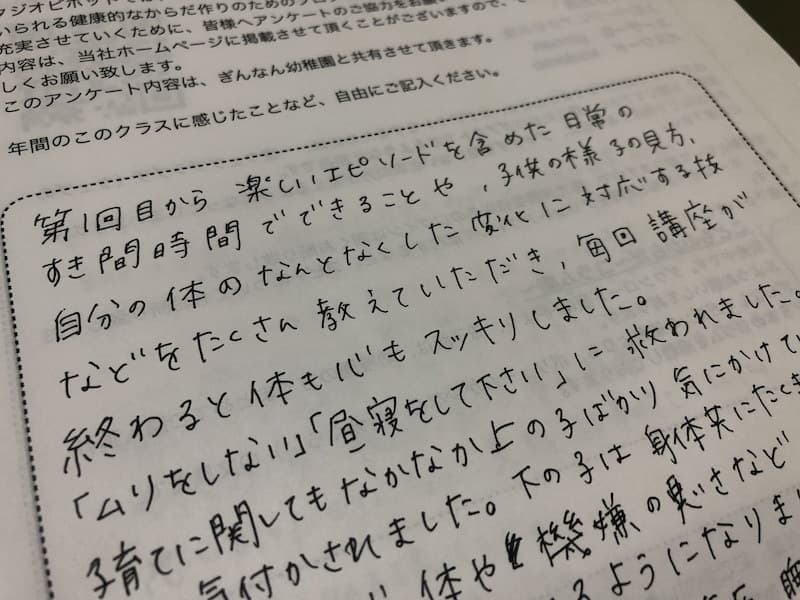 タジオピボット
いられる健康的なからだ作りのためのプログ
充実させていくために、皆様へアンケートのご協力をお願い
内容は、当社ホームページに掲載させて頂くことがございますので、
しくお願い致します。
このアンケート内容は、ぎんなん幼稚園と共有させて頂きます。
年間のこのクラスに感じたことなど、自由にご記入ください。
第1回目から楽しいエピソードを含めた日常の
すき間時間でできることや、子供の様子の見方、
自分の体のなんとなくした変化に対応する技
などをたくさん教えていただき、毎回講座が
終わると体も心もスッキリしました。
「ムリをしない」「昼寝をして下さい」に救われました。
子育てに関してもなかなか上の子ばかり気にかけてい
気付かされました。下の子は身体共にたくま
体や機嫌の悪さなど
るようになりまし